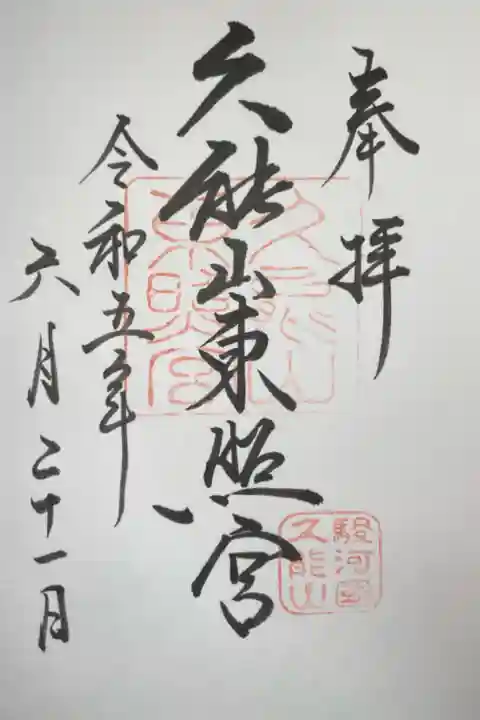 奉拝
久能山東照宮
令和五年
六月二十一日
駿河國
久能山